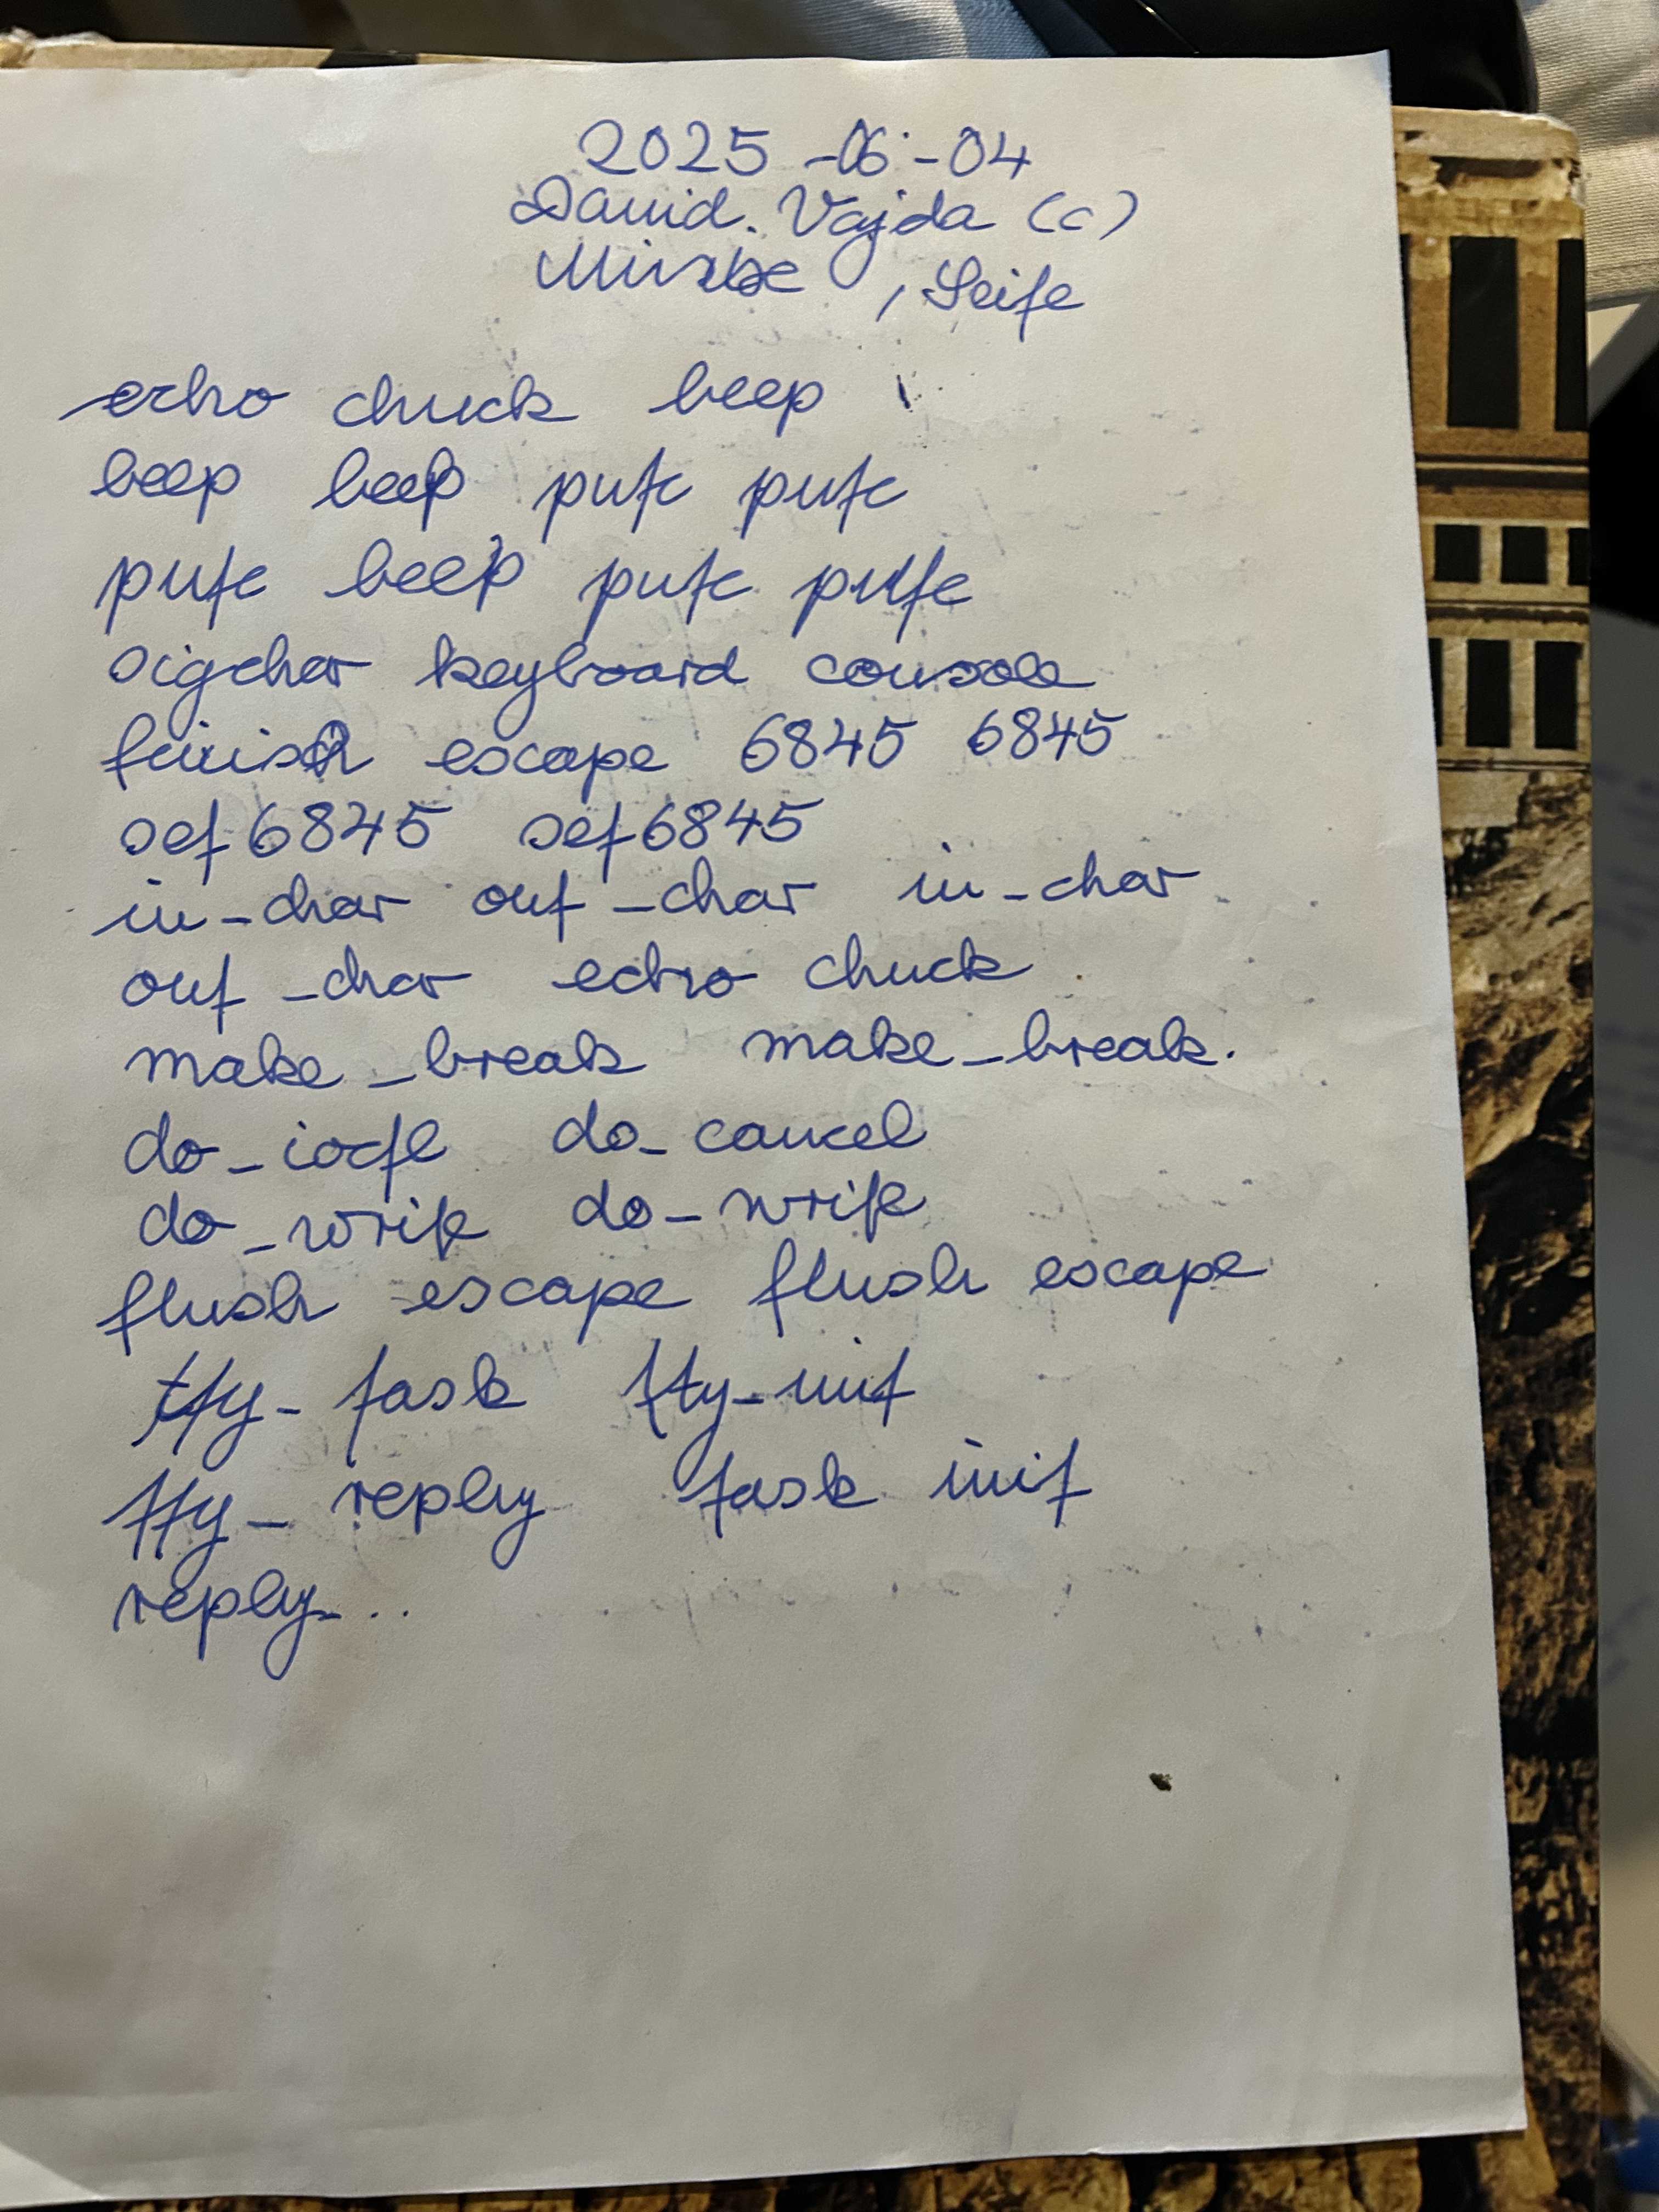 2025-06-04
David Vajda (c)
, Seife
echo chuck beep
beep beep putc putc
putc beep putc putc
sigchar keyboard console
finish escape 6845 6845
set6845 set6845
in_char out_char in_char
out_char echo chuck
make_break make_break.
do_ioctl do_cancel
do_write do_write
flush escape flush escape
tty_task tty_init
tty_reply task init
reply...